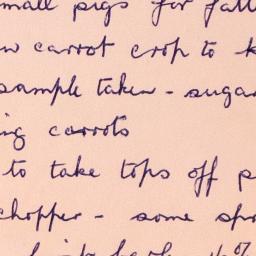 small pigs for fatt
w carrot crop to k
sample taken - sugar
ing carrots
to take tops off p
chopper - some spr